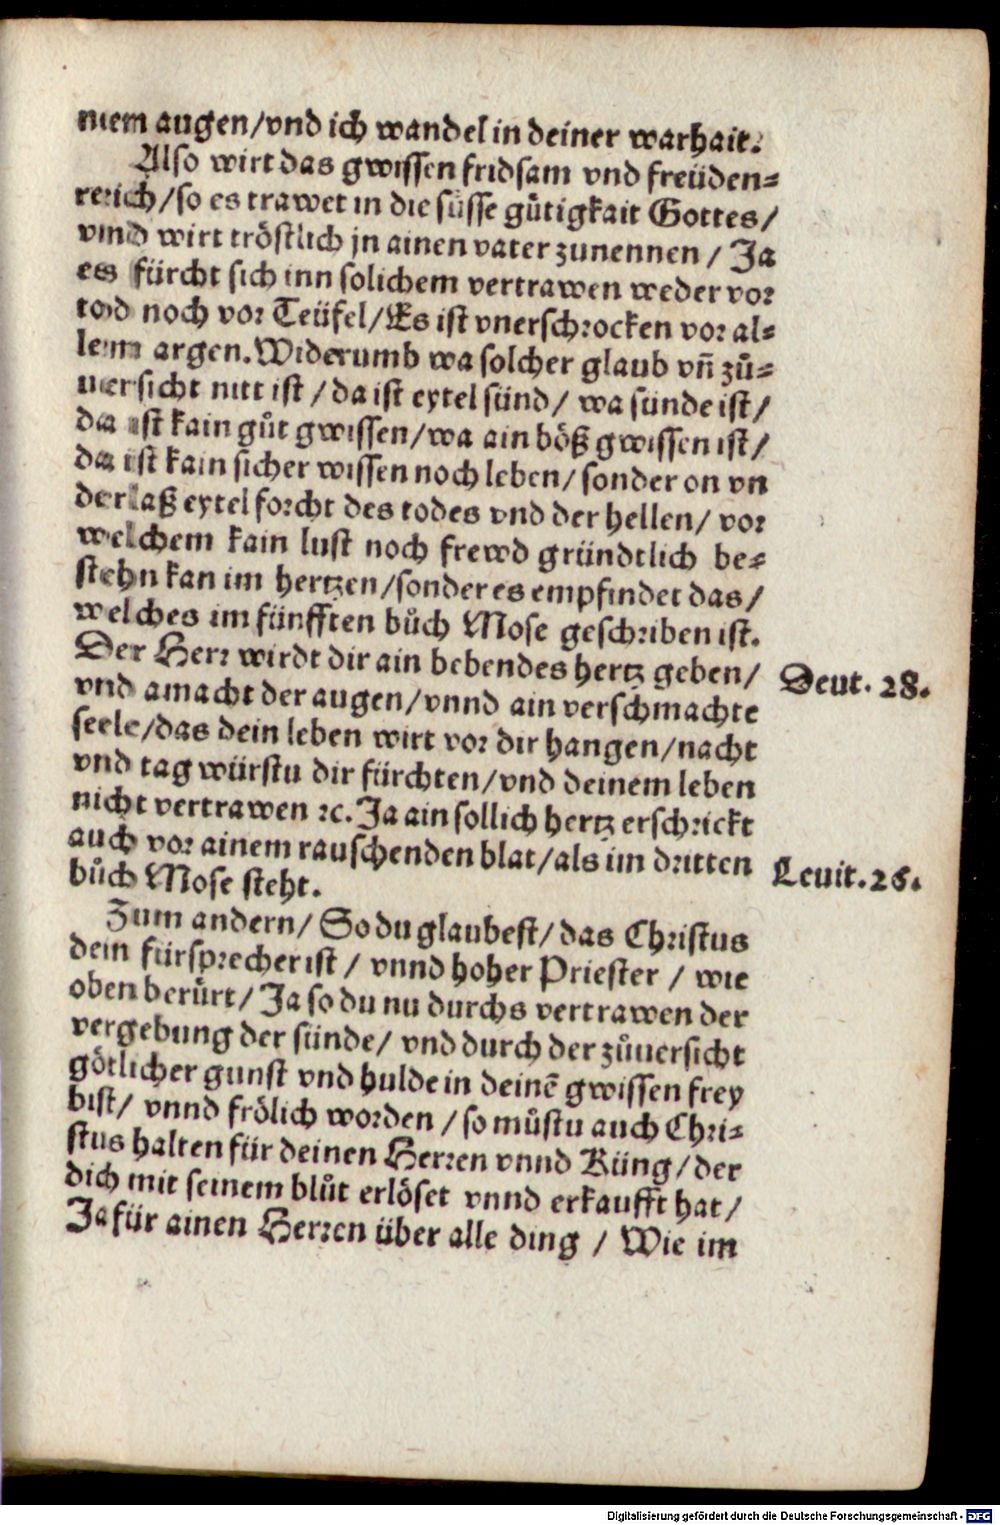 niem augen/vnd ich wandel in deiner warhait.
Also wirt das gwissen fridsam vnd freüden-
reich/so es trawet in die süsse gütigkait Gottes/
vnd wirt tröstlich jn ainen vater zunennen / Ja
es fürcht sich inn solichem vertrawen weder vor
tod noch vor Teüfel/Es ist vnerschrocken vor al-
lem argen. Widerumb wa solcher glaub vñ zů-
uersicht nitt ist / da ist eytel sünd/ wa sünde ist/
da ist kain gůt gwissen/wa ain böß gwissen ist/
da ist kain sicher wissen noch leben/ sonder on vn
derlaß eytel forcht des todes vnd der hellen/ vor
welchem kain lust noch frewd gründtlich be-
stehn kan im hertzen/sonder es empfindet das/
welches im fünfften bůch Mose geschriben ist.
Der Herr wirdt dir ain bebendes hertz geben/
vnd amacht der augen/vnnd ain verschmachte
seele/das dein leben wirt vor dir hangen/nacht
vnd tag würstu dir fürchten/vnd deinem leben
nicht vertrawen ꝛc. Ja ain sollich hertz erschrickt
auch vor ainem rauschenden blat/als im dritten
bůch Mose steht.
Deut. 28.
Leuit. 26.
Zum andern/ So du glaubest/ das Christus
dein fürsprecher ist / vnnd hoher Priester / wie
oben berürt/ Ja so du nu durchs vertrawen der
vergebung der sünde/ vnd durch der zůuersicht
götlicher gunst vnd hulde in deinẽ gwissen frey
bist/ vnnd frölich worden / so můstu auch Chri-
stus halten für deinen Herren vnnd Küng/der
dich mit seinem blůt erlöset vnnd erkaufft hat/
Ja für ainen Herren über alle ding / Wie im
Digitalisierung gefördert durch die Deutsche Forschungsgemeinschaft - DFG